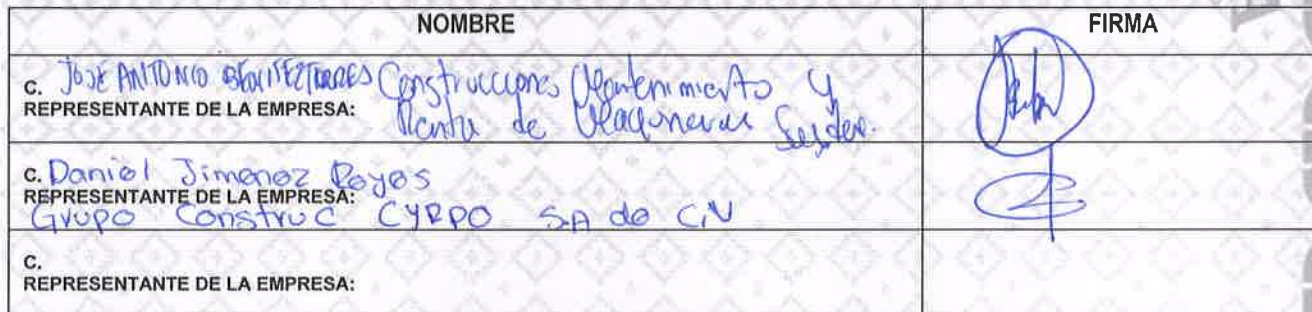 NOMBRE FIRMA
C. JOSE ANTONIO BENITEZ TORRES Construcciones Mantenimiento y
REPRESENTANTE DE LA EMPRESA: Renta de
C. Daniel Jimenez Reyes
REPRESENTANTE DE LA EMPRESA:
Grupo Construc CYRPO S.A de C.V
C.
REPRESENTANTE DE LA EMPRESA: